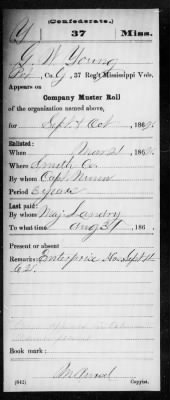 (Confederate.)
Y 37 Miss.
G. W. Young
Pvt, Co. G, 37 Reg't Mississippi Vols.
Appears on
Company Muster Roll
of the organization named above,
for Sept & Oct, 1862.
Enlisted:
When Mar 21, 1862.
Where Smith Co.
By whom Capt.
Period 3 years
Last paid:
By whom Maj. Landry
To what time Aug 31, 186 .
Present or absent
Remarks: Enterprise Sept 1st
62.
Book mark:
(642) Copyist.